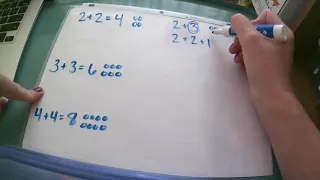 2+2=4
2+3
2+2+1
3+3=6
4+4=8